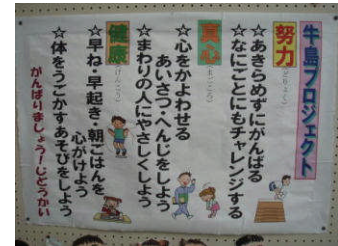 牛島プロジェクト
努力
(どりょく)
☆あきらめずにがんばる
☆なにごとにもチャレンジする
真心
(まごころ)
☆心をかよわせる
あいさつ・へんじをしよう
☆まわりの人にやさしくしよう
健康
(けんこう)
☆早ね・早起き・朝ごはんを
心がけよう
☆体をうごかすあそびをしよう
がんばりましょう！じどうかい